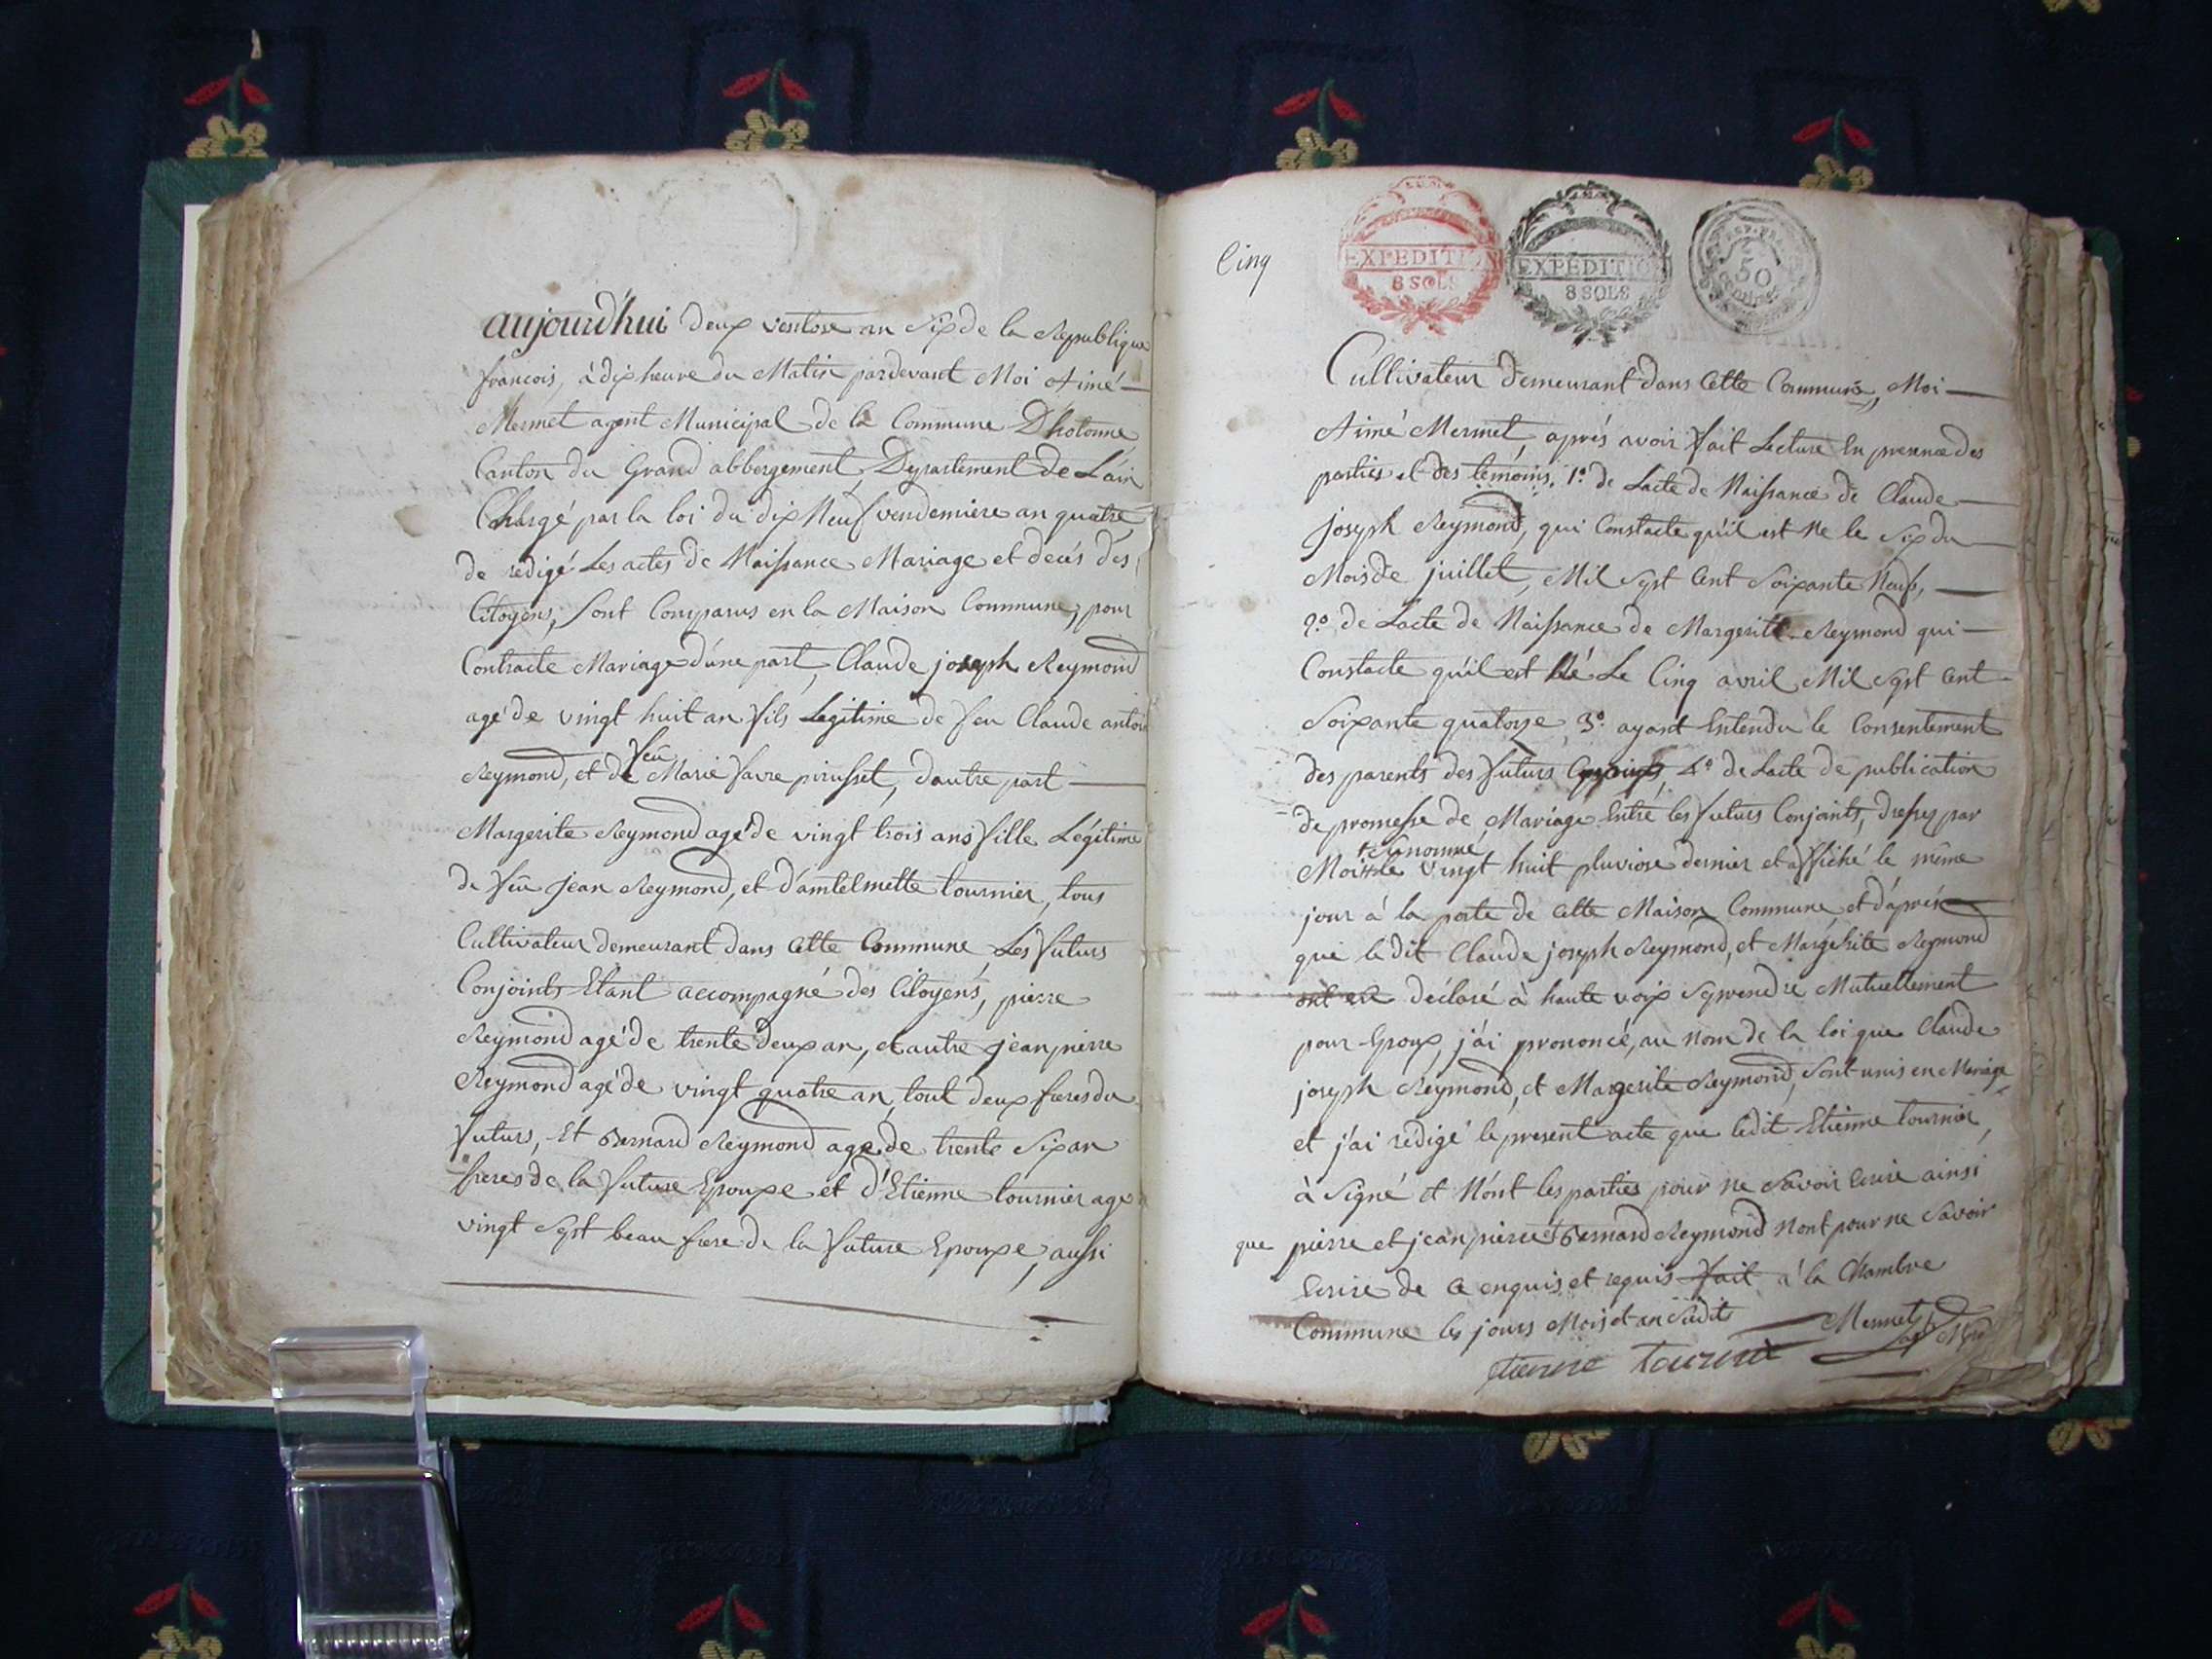 aujourd'hui deux ventose an Six de la Republique
francois, à dix heure du Matin pardevant Moi Aimé
Mermet agent Municipal de la Commune D'hotonne
Canton du Grand abbergement, Departement de L'ain
Chargé par la loi du dix Neuf vendemiere an quatre
de redigé Les actes de Naissance Mariage et decés des
Citoyens, Sont Comparus en la Maison Commune, pour
Contracte Mariage d'une part, Claude joseph Reymond
agé de vingt huit an fils Legitime de feu Claude antoin
feu
Reymond, et de Marie favre pirusset, d'autre part
Margerite Reymond agé de vingt trois ans fille Légitime
de feu jean Reymond, et d'antelmette tournier, tous
Cultivateur demeurant dans Cette Commune Les futurs
Conjoints Etant accompagné des Citoyens, pierre
Reymond agé de trente deux an, et autre jean pierre
Reymond agé de vingt quatre an, tout deux freres du
futurs, Et Bernard Reymond age de trente Six an
freres de la future Epouxe et d'Etienne tournier age
vingt Sept beau frere de la future Epouxe, aussi
Cinq
EXPEDITION
8 SOLS
EXPEDITION
8 SOLS
REP. FRA
50
Cultivateur demeurant dans Cette Commune, Moi
Aimé Mermet, aprés avoir fait Lecture En presence des
parties et des temoins, 1º de L'acte de Naissance de Claude
joseph Reymond, qui Constacte qu'il est Ne le Six du
Mois de juillet, Mil Sept Cent Soixante Neuf,
2º de L'acte de Naissance de Margerite Reymond qui
Constacte qu'il est Né Le Cinq avril Mil Sept Cent
Soixante quatorze, 3º ayant Entendu le Consentement
des parents des futurs 4º de L'acte de publication
de promesse de Mariage Entre les futurs Conjoints, dressez par
Surnommé
Moi le vingt huit pluviose dernier et affiché le même
jour à la porte de Cette Maison Commune et d'aprés
que le dit Claude joseph Reymond, et Margerite Reymond
ont déclaré à haute voix Se prendre Mutuellement
pour Epoux, j'ai prononcé, au Nom de la loi que Claude
joseph Reymond, et Margerite Reymond, Sont unis en Mariage
et j'ai redigé le present acte que ledit Etienne tournier,
à Signé et N'ont les parties pour ne Savoir Ecrire ainsi
que pierre et jean pierre et Bernard Reymond N'ont pour ne Savoir
Ecrire de Ce enquis et requis fait à la Chambre
Commune les jours Mois et an Susdit Mermet
etienne tournie